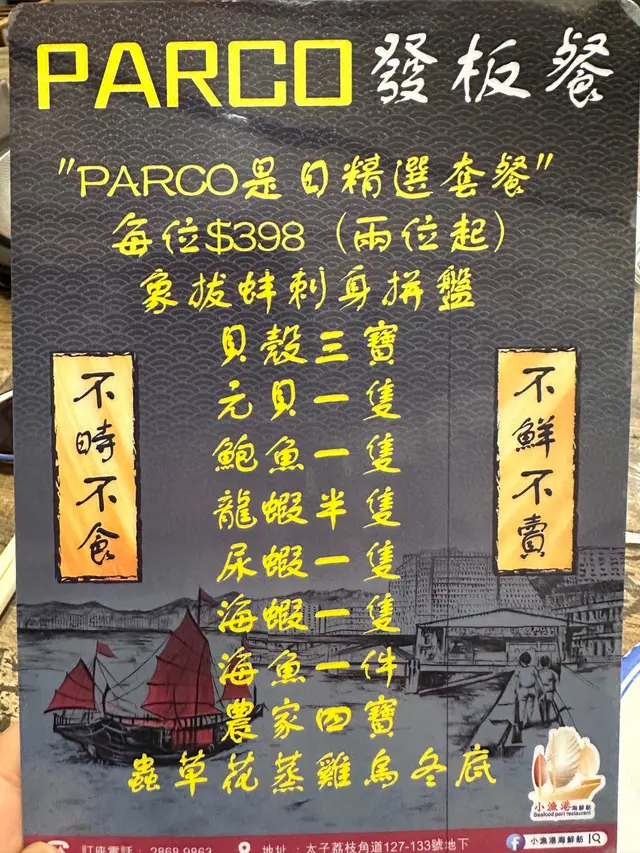 PARCO發板餐
"PARCO是日精選套餐"
每位$398（兩位起）
象拔蚌刺身拼盤
貝殼三寶
元貝一隻
鮑魚一隻
龍蝦半隻
尿蝦一隻
海蝦一隻
海魚一件
農家四寶
蟲草花蒸雞烏冬底
不時不食
不鮮不賣
小漁港海鮮舫
Seafood port restaurant
訂座電話：2868 9863
地址：太子荔枝角道127-133號地下
小漁港海鮮舫